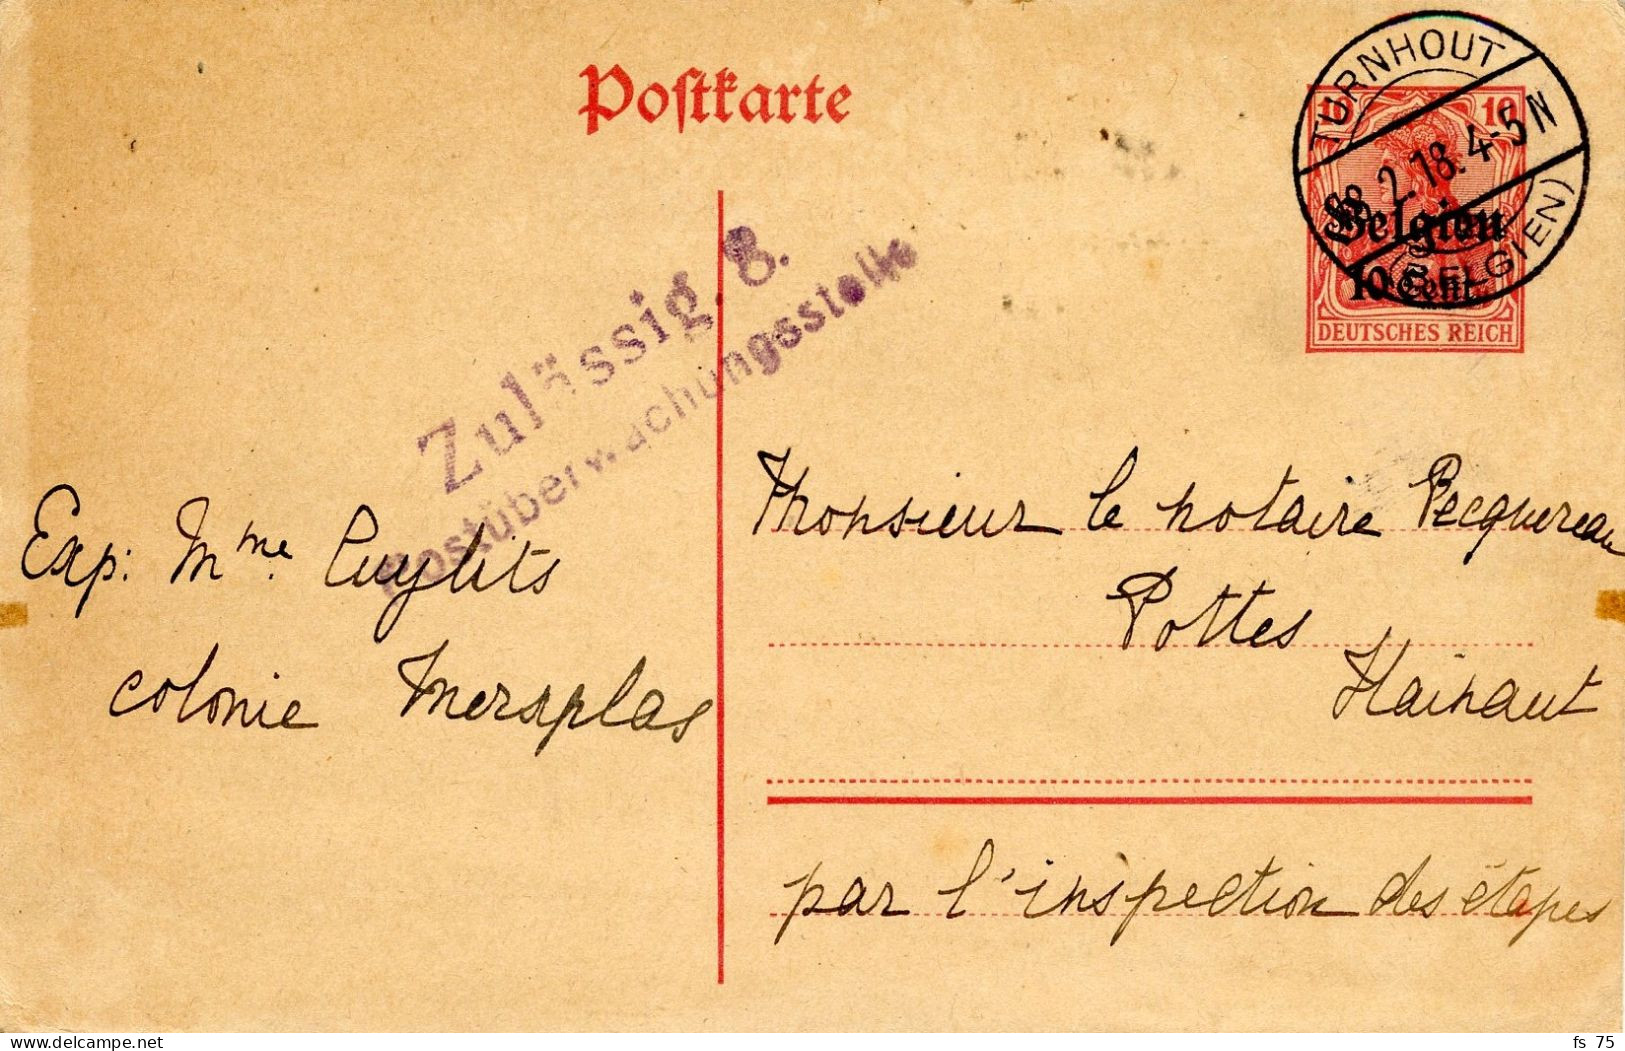 Postkarte
TURNHOUT
2.18. 4-5 N
(BELGIEN)
10 10
Belgien
10 Cent.
DEUTSCHES REICH
Zulässig. 8.
Postüberwachungsstelle
Exp: Mme. Cuylits
colonie Merxplas
Monsieur le notaire Pecquereau
Pottes
Hainaut
par l'inspection des étapes
fs 75